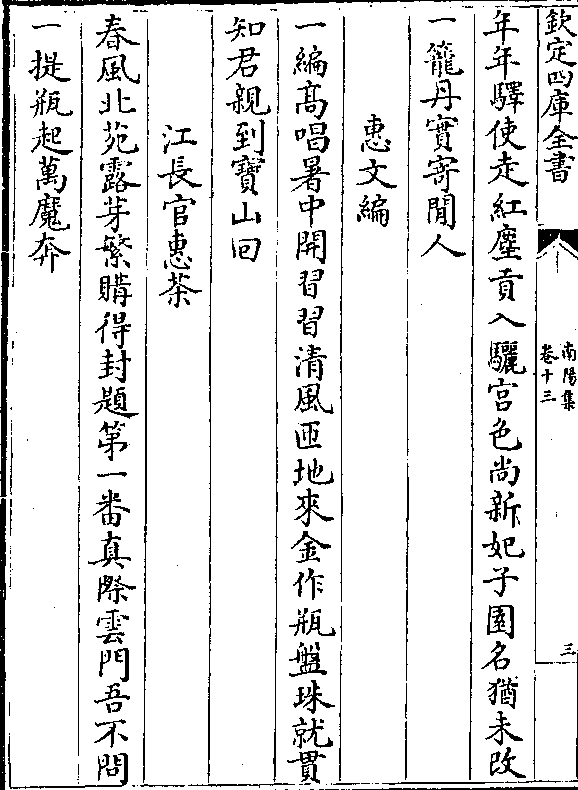 欽定四庫全書
南陽集
卷十三
三
年年驛使走紅塵貢入驪宮色尚新妃子園名猶未改
一籠丹實寄閒人
惠文編
一編髙唱暑中開習習清風匝地來金作瓶盤珠就貫
知君親到寶山回
江長官惠茶
春風北苑露芽繁購得封題第一番真際雲門吾不問
一提瓶起萬魔奔